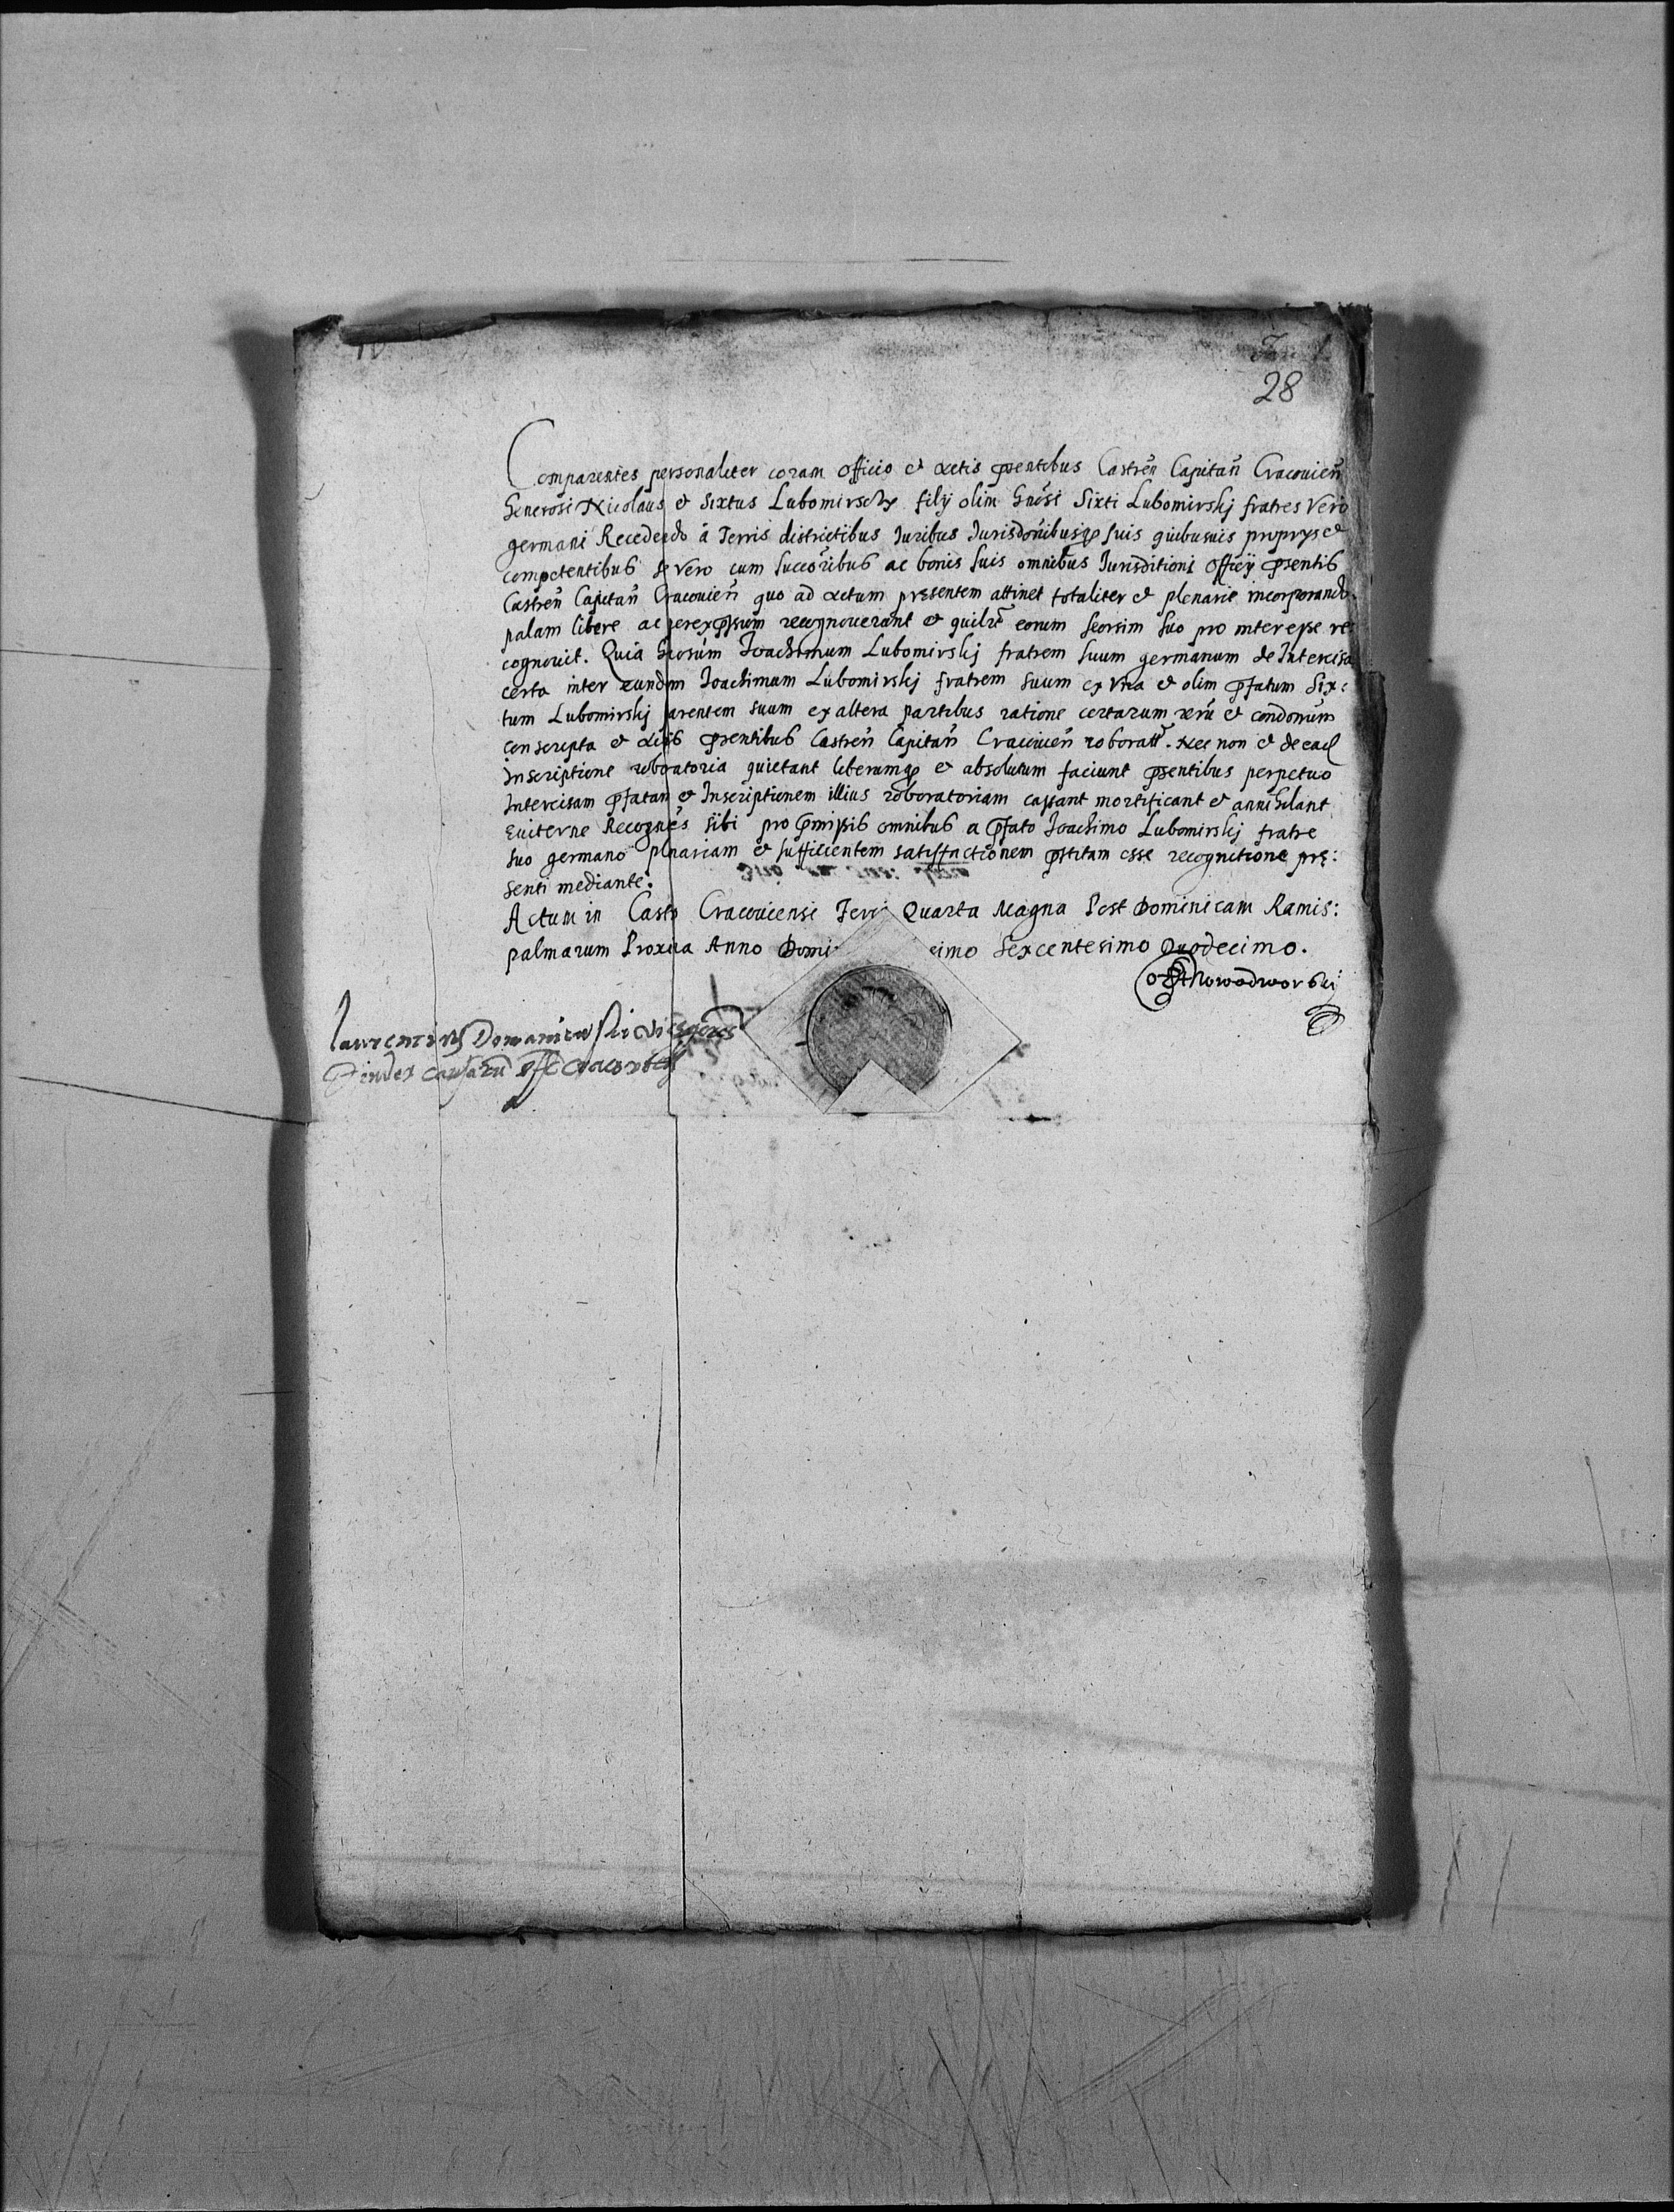 28
Comparentes personaliter coram officio et actis pñtibus Castreñ Capitañ Cracouieñ
Generosi Nicolaus et Sixtus Lubomirscÿ filÿ olim Gnosi Sixti Lubomirskj fratres Vero
germani Recedendo á Terris districtibus Iuribus Iurisdõnibusq suis quibusuis proprys et
competentibus se vero cum succõribus ac bonis suis omnibus Iurisditioni Officÿ pñtis
Castreñ Capitañ Cracouieñ quo ad actum presentem attinet totaliter et plenarie incorporando.
palam libere ac per expssum recognouerunt et quilt eorum seorsim suo pro interesse re:
cognouit. Quia Gnosum Joachimum Lubomirskj fratrem suum germanum de Intercisa
certa inter eundem Joachimum Lubomirskj fratrem suum ex vna et olim pfatum Six:
tum Lubomirskj parentem suum ex altera partibus ratione certarum rerũ et condonum
conscripta et Actis psentibus Castreñ Capitañ Cracouieñ roborat. Nec non et de ead
Inscriptione roboratoria quietant liberumq et absolutum faciunt psentibus perpetuo
Intercisam pfatam et Inscriptionem illius roboratoriam cassant mortificant et annihilant
Euiterne Recognes sibi pro pmissis omnibus a pfato Joachimo Lubomirskj fratre
suo germano plnariam et sufficientem satisfactionem pstitam esse recognitione prę:
senti mediante.
Actum in Castro Cracouiensi Feria Quarta Magna Post Dominicam Ramis:
palmarum Proxima Anno Domi simo Sexcentesimo Duodecimo.
Nowodworski
Laurentius Vicesgerens
Iudex causarũ Off Cracovien